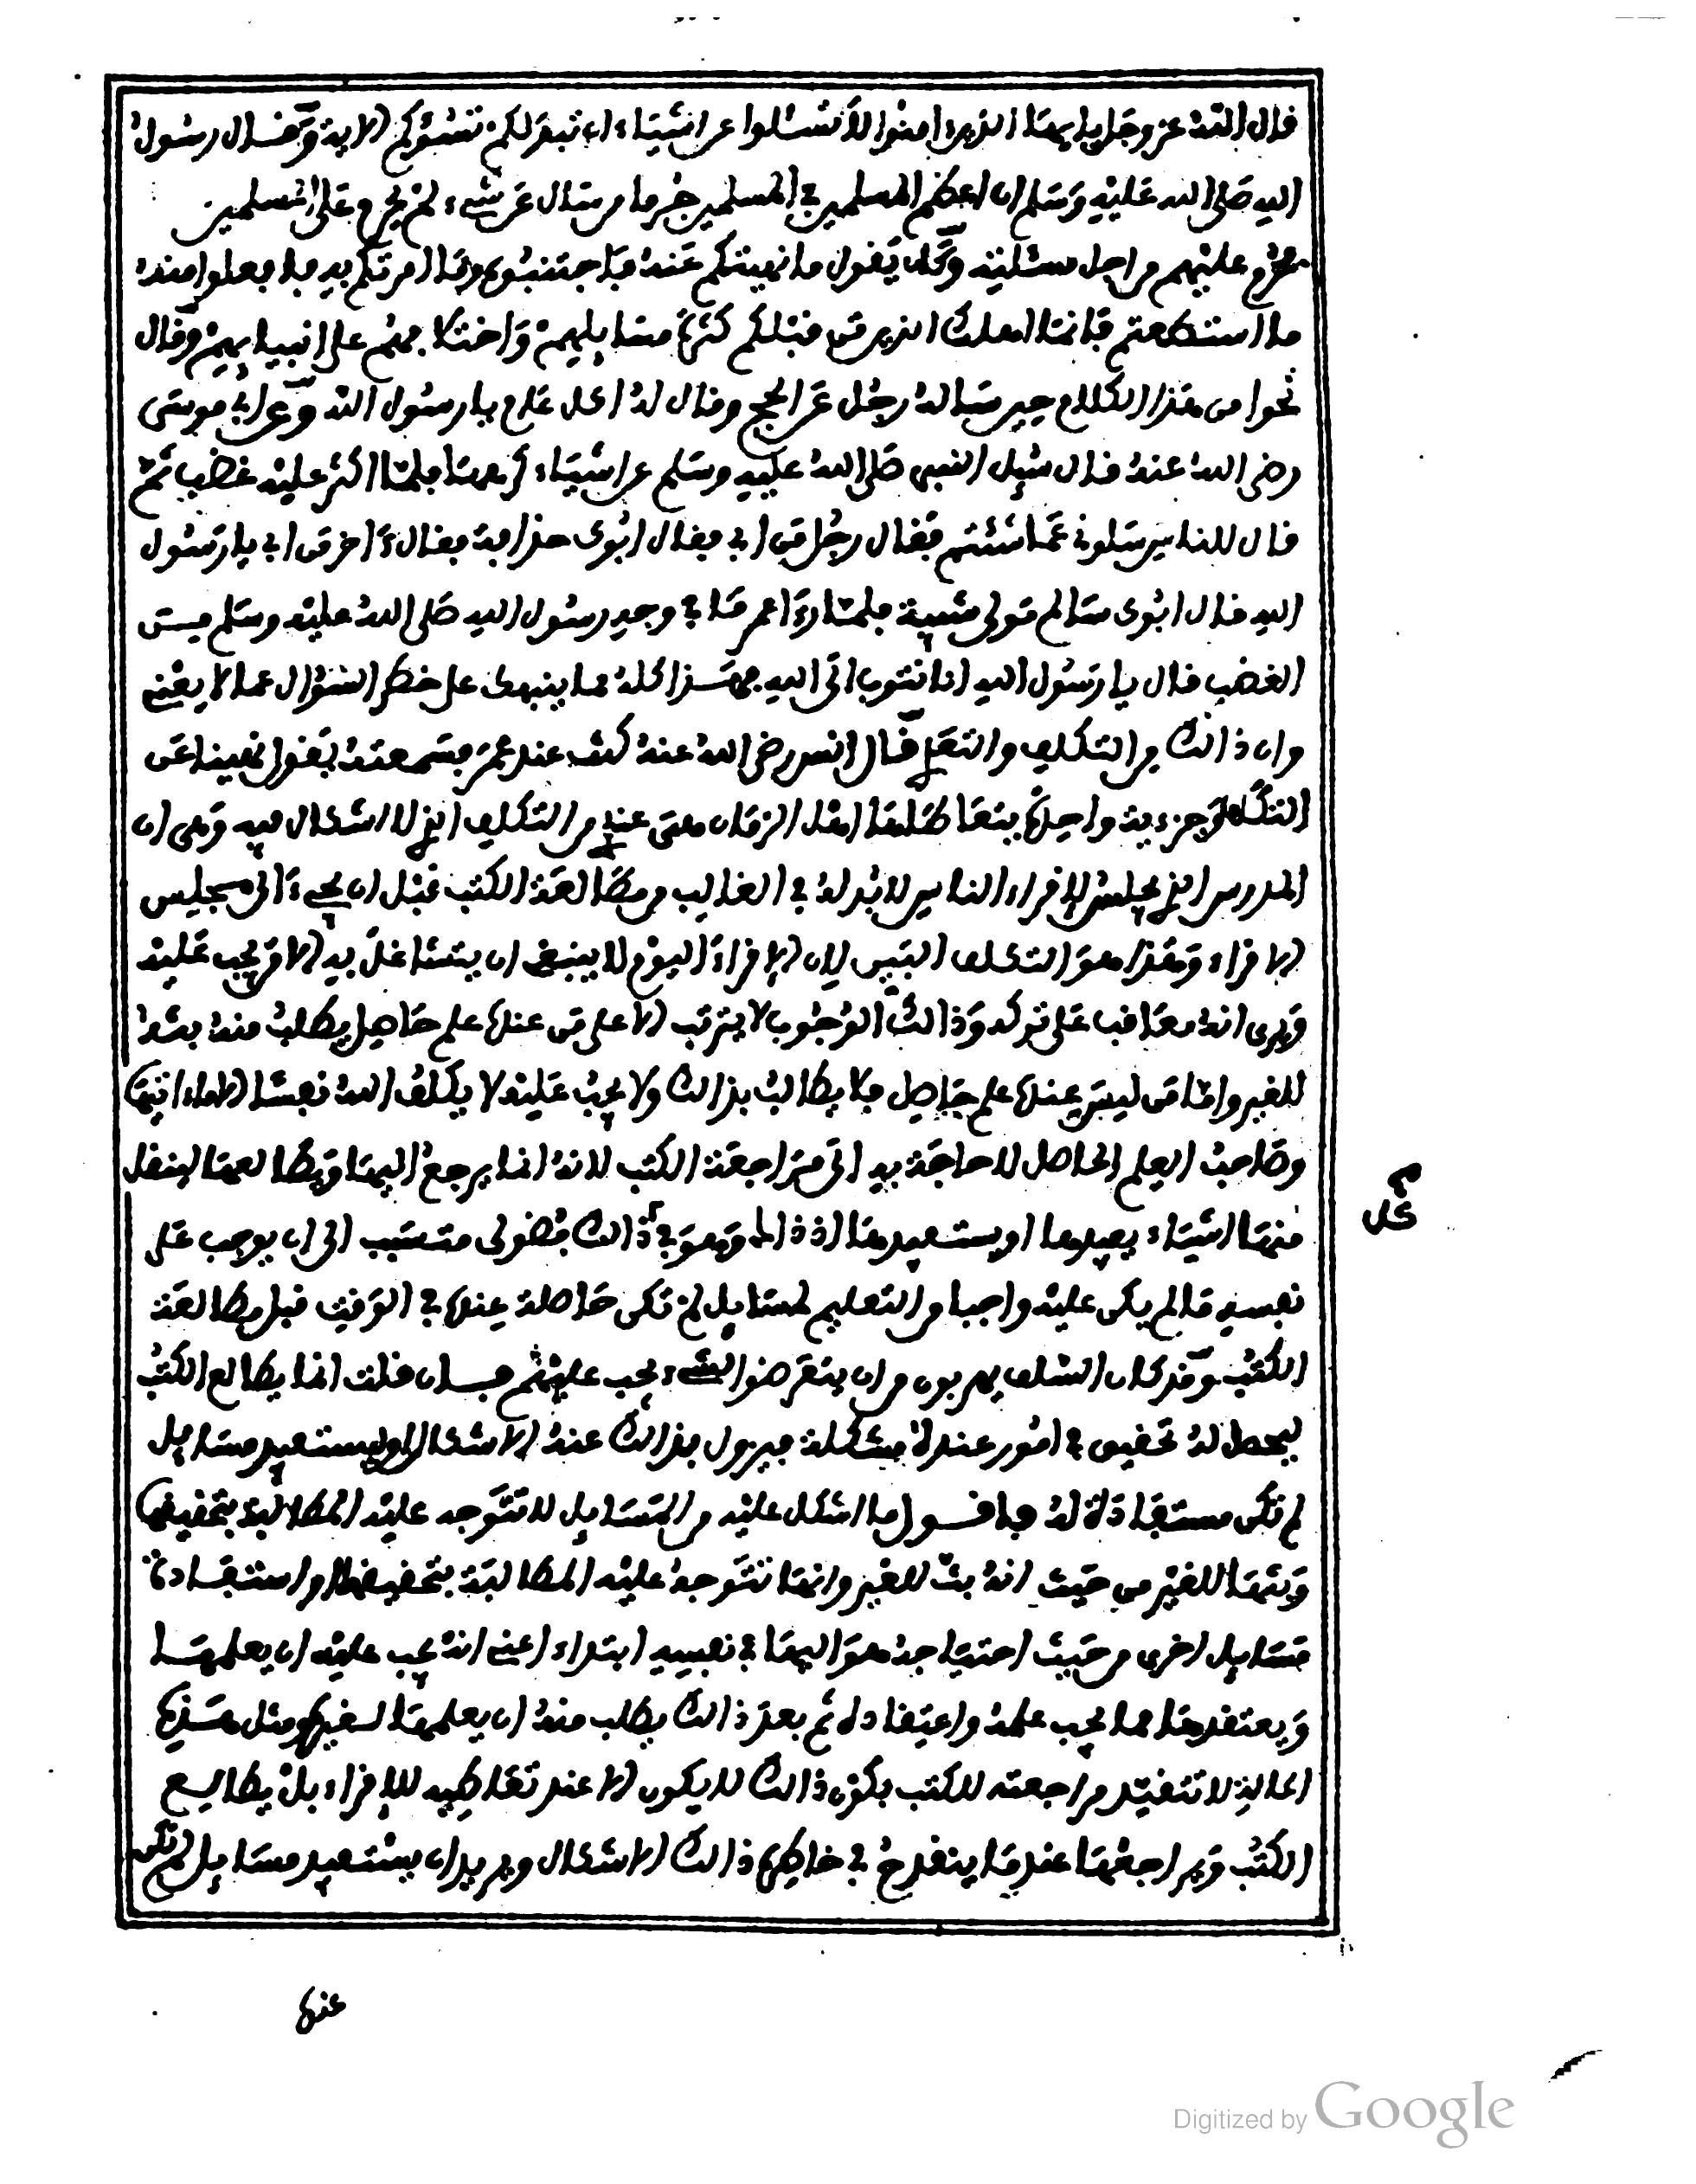 قال الله عز وجل يا ايها الذين امنوا لا تسئلوا عن اشياء ان تبد لكم تسؤكم الاية وقال رسول
الله صلى الله عليه وسلم ان اعظم المسلمين في المسلمين جرما من سال عن شيء لم يحرم على المسلمين
فحرم عليهم من اجل مسئلته وكان يقول ما نهيتكم عنه فاجتنبوه وما امرتكم به فافعلوا منه
ما استطعتم فانما اهلك الذين من قبلكم كثرة مسايلهم واختلافهم على انبيايهم وقال
نحوا من هذا الكلام حين ساله رجل عن الحج وقال له اكل عام يا رسول الله وعن ابي موسى
رضي الله عنه قال سئل النبي صلى الله عليه وسلم عن اشياء كرهها فلما اكثر عليه غضب ثم
قال للناس سلوني عما شئتم فقال رجل من ابي فقال ابوك حذافة فقال ءاخر من ابي يا رسول
الله قال ابوك سالم مولى شيبة فلما رءا عمر ما في وجه رسول الله صلى الله عليه وسلم من
الغضب قال يا رسول الله انا نتوب الى الله فهذا كله مما ينبهك على خطر السؤال عما لا يعني
وان ذالك من التكلف والتعمق قال انس رضي الله عنه كنت عند عمر فسمعته يقول نهينا عن
التكلف وجزءية واحدة يتعاطاها اهل الزمان هي عندي من التكلف الذي لا اشكال فيه وهي ان
المدرس الذي يجلس لاقراء الناس لا بد له في الغالب من مطالعة الكتب قبل ان يجيء الى مجلس
الاقراء وهذا هو التكلف البين لان الاقراء اليوم لا ينبغي ان يتشاغل به الا من يجب عليه
ويرى انه معاقب على تركه وذالك الوجوب لا يترتب الا على من عنده علم حاصل يطلب منه بثه
للغير واما من ليس عنده علم حاصل فلا يطالب بذالك ولا يجب عليه لا يكلف الله نفسا الا ما ءاتيها
وصاحب العلم الحاصل لا حاجة به الى مراجعة الكتب لانه انما يرجع اليها ويطالعها لينقل
منها اشياء يفيدها او يستفيدها اذ ذاك وهو في ذالك فضولي متسبب الى ان يوجب على
نفسه ما لم يكن عليه واجبا من التعليم لمسايل لم تكن حاصلة عنده في الوقت قبل مطالعة
الكتب وقد كان السلف يهربون من ان يتعرضوا لشيء يجب عليهم فان قلت انما يطالع الكتب
ليحصل له تحقيق في امور عنده مشكلة فيزول بذالك عنه الاشكال او ليستفيد مسايل
لم تكن مستفادة له فاقول ما اشكل عليه من المسايل لا تتوجه عليه المطالبة بتحقيقها
وبثها للغير من حيث انه بث للغير وانما تتوجه عليه المطالبة بتحقيقها واستفادة
مسايل اخرى من حيث احتياجه هو اليها في نفسه ابتداء اعني انه يجب عليه ان يعلمها
ويعتقدها مما يجب علمه واعتقاده ثم بعد ذالك يطلب منه ان يعلمها لغيره ومثل هذه
الحالة لا تتقيد مراجعته للكتب بكون ذالك لا يكون الا عند تعاطيه للاقراء بل يطالع
الكتب ويراجعها عند ما ينقدح في خاطره ذالك الاشكال ويريد ان يستفيد مسايل لم تكن
عنده
Digitized by Google